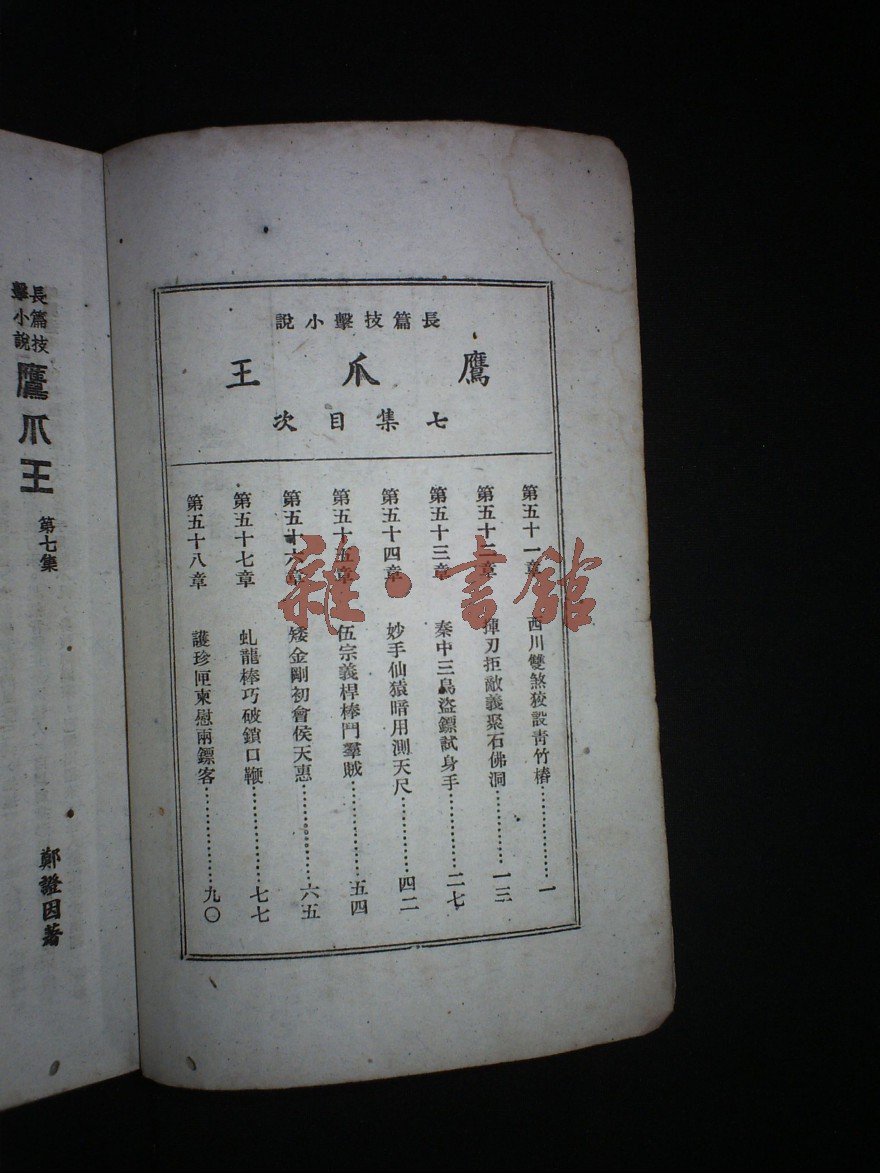 長篇技擊小說
鷹爪王
七集目次
第五十一章 西川雙煞狡設靑竹樁…………一
第五十二章 揮刃拒敵義聚石佛洞…………一三
第五十三章 秦中三鳥盜鏢試身手…………二七
第五十四章 妙手仙猿暗用測天尺…………四二
第五十五章 伍宗義桿棒鬥羣賊…………五四
第五十六章 矮金剛初會侯天惠…………六五
第五十七章 虬龍棒巧破鎖口鞭…………七七
第五十八章 護珍匣柬慰兩鏢客…………九〇
長篇技
擊小說
鷹爪王
第七集
鄭證因著
雜·書館